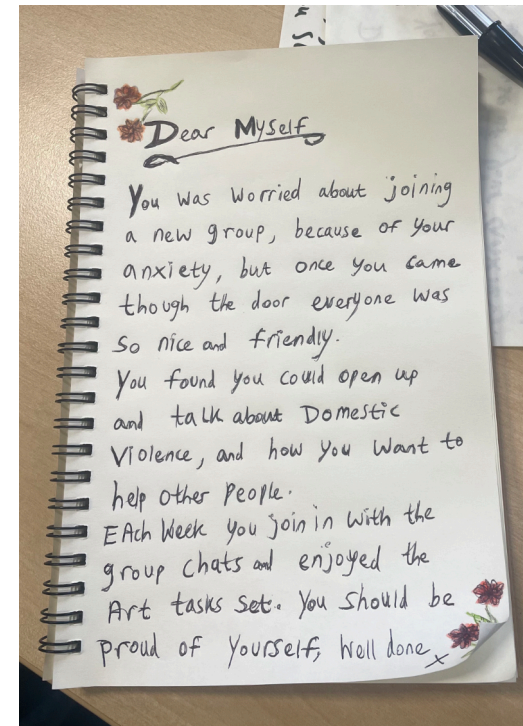 Dear Myself
You was worried about joining
a new group, because of your
anxiety, but once you came
though the door everyone was
so nice and friendly.
You found you could open up
and talk about Domestic
Violence, and how you want to
help other people.
EAch Week you join in with the
group chats and enjoyed the
Art tasks set. You should be
proud of yourself, Well done x